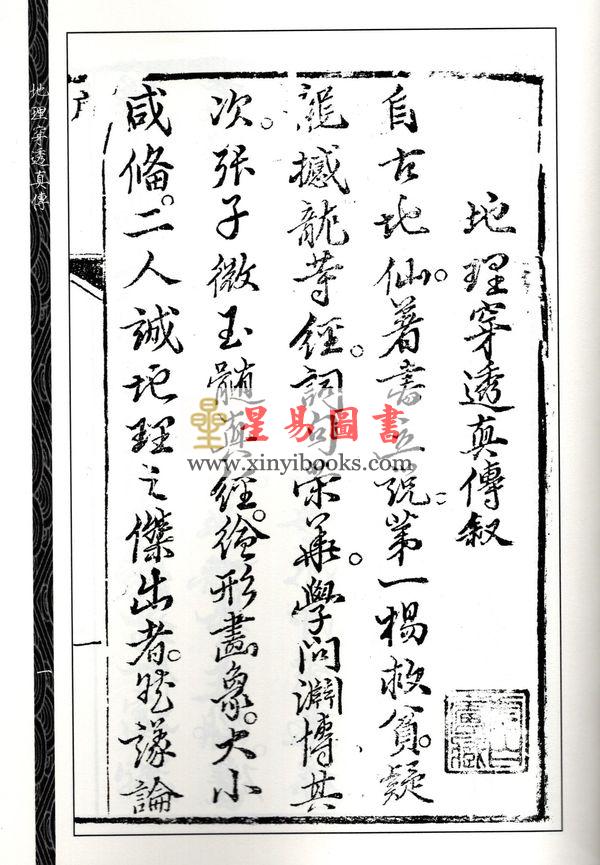 地理穿透真傳
地理穿透真傳叙
自古地仙。著書立說。第一楊救貧。疑
龍撼龍等經。詞句榮華。學問淵博。其
次。張子微玉髓真經。繪形畫象。大小
咸俻。二人誠地理之傑出者。然議論
一
星易圖書
www.xinyibooks.com